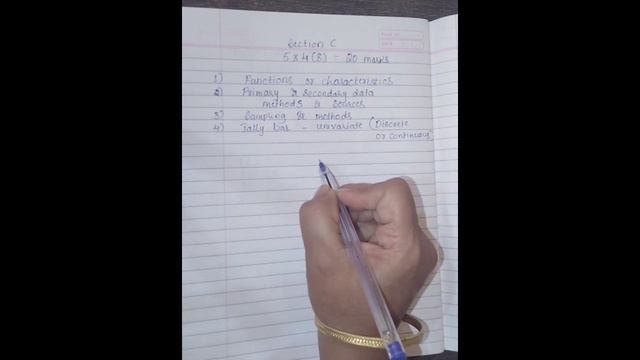 Section C
5 x 4 (8) = 20 marks
1) Functions or characteristics
2) Primary & Secondary data
methods & Sources
3) Sampling & methods
4) Tally bar - univariate (Discrete
or continuous)